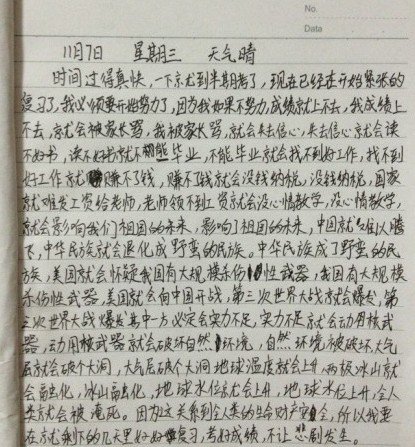 No.
Date
11月7日 星期三 天气晴
时间过得真快,一下就到半期考了,现在已经在开始紧张的
复习了,我必须要开始努力了,因为我如果不努力,成绩就上不去,我成绩上
不去,就会被家长骂,我被家长骂,就会失去信心,失去信心就会读
不好书,读不好书就不能毕业,不能毕业就会找不到好工作,找不到
好工作就赚不了钱,赚不了钱就会没钱纳税,没钱纳税,国家
就难发工资给老师,老师领不到工资就会没心情教学,没心情教学,
就会影响我们祖国的未来,影响了祖国的未来,中国就难以腾
飞,中华民族就会退化成野蛮的民族。中华民族成了野蛮的民
族,美国就会怀疑我国有大规模杀伤性武器,我国有大规模
杀伤性武器,美国就会向中国开战,第三次世界大战就会爆发,第
三次世界大战爆发其中一方必定会实力不足,实力不足就会动用核武
器,动用核武器就会破坏自然环境,自然环境被破坏,大气
层就会破个大洞,大气层破个大洞地球温度就会上升,两极冰山就
会融化,冰山融化,地球水位就会上升,地球水位上升,全人
类就会被淹死。因为这关系到全人类的生命财产安全,所以我要
在就剩下的几天里好好复习,考好成绩,不让悲剧发生。